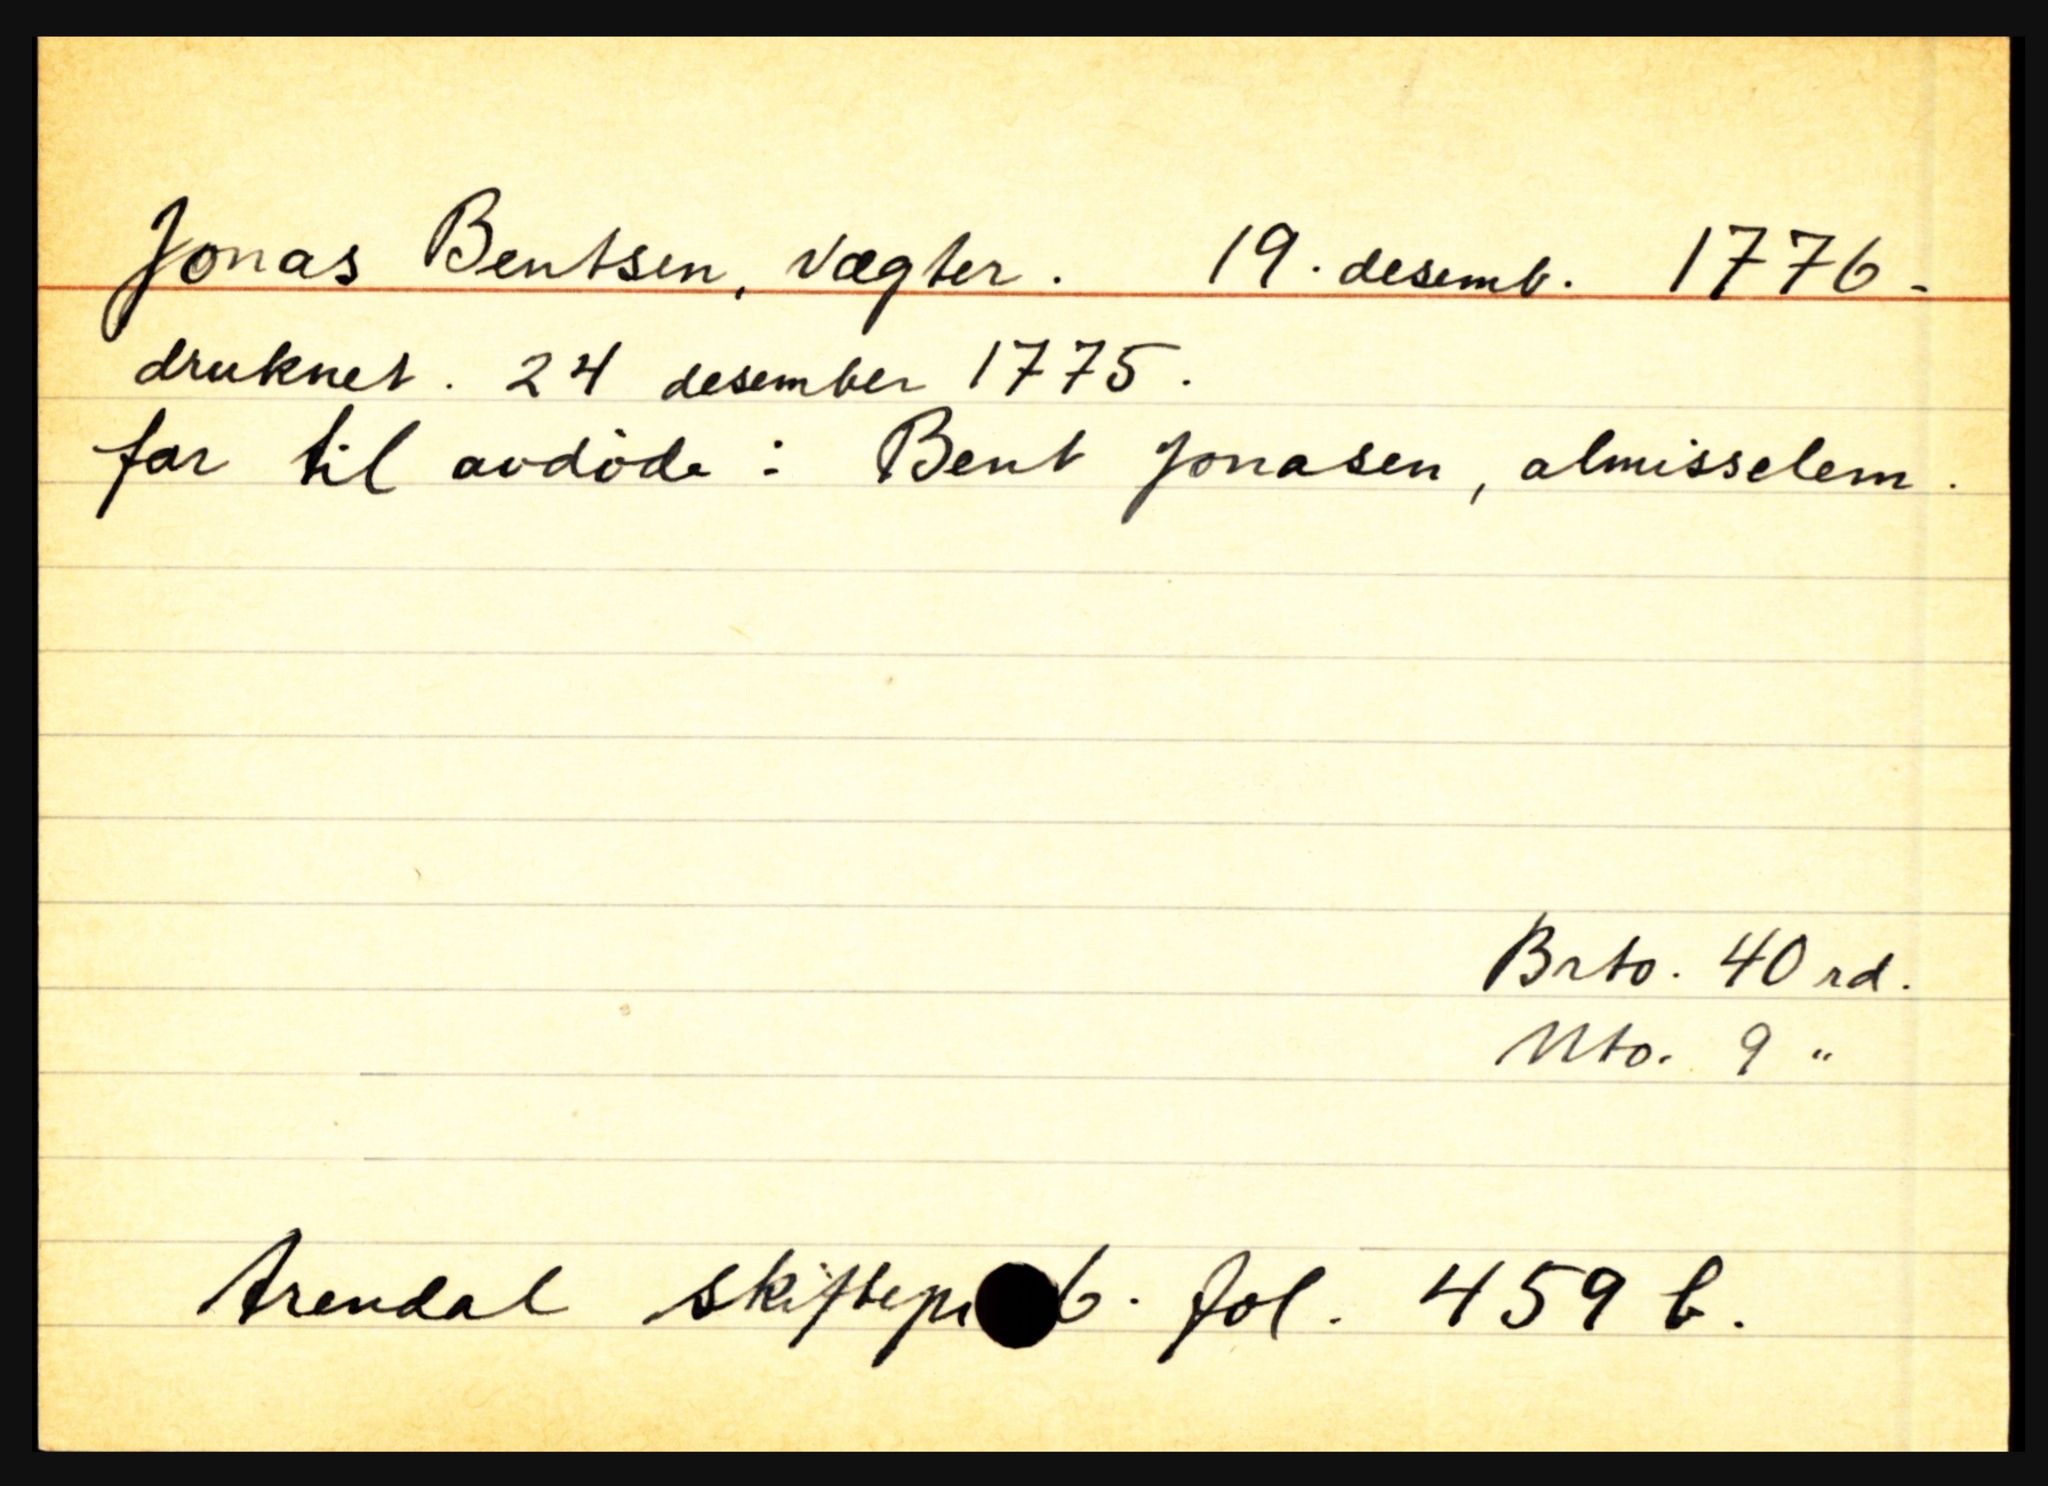 Jonas Bentsen, vægter. 19. desemb. 1776-
druknet. 24 desember 1775.
far til avdöde: Bent Jonasen, almisselem.
Brto. 40 rd.
Nto. 9 "
Arendal 6. fol. 459 b.